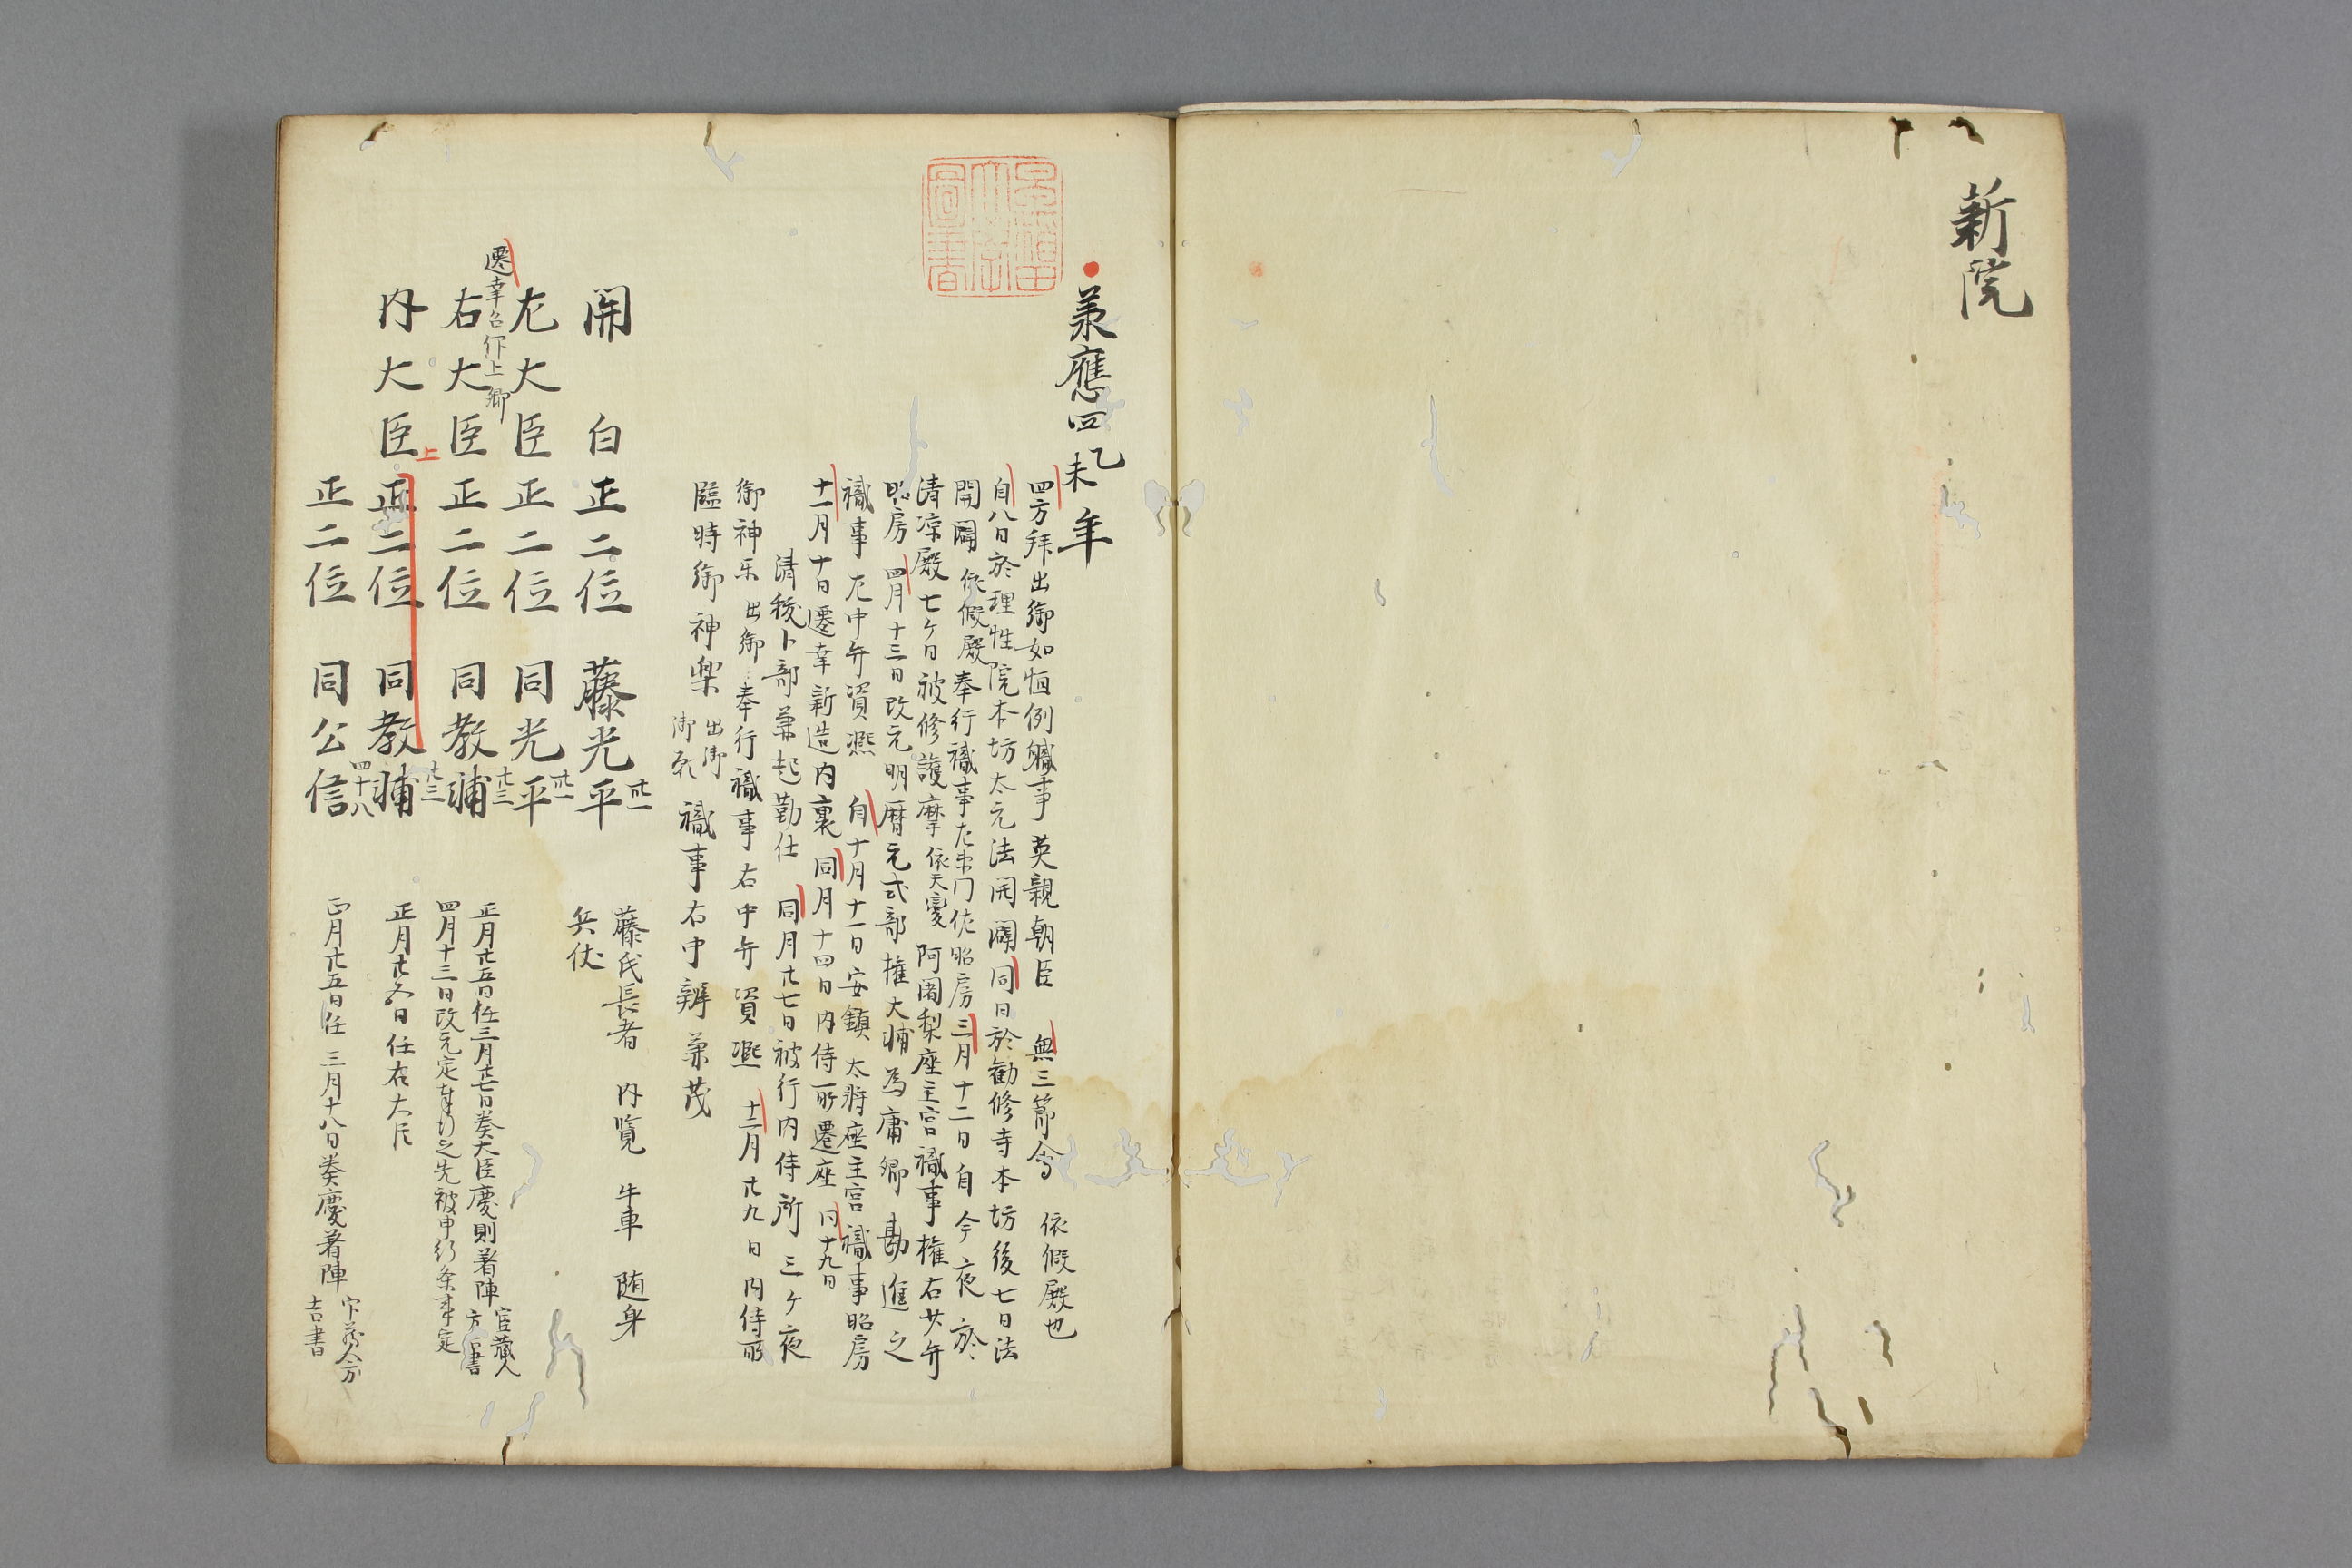 新院
承應四乙未年
四方拝出御如恒例職事英親朝臣 無三節會 依假殿也
自八日於理性院本坊太元法開闢同日於勧修寺本坊後七日法
開闢 依假殿 奉行職事左衛门佐昭房三月十二日自今夜於
清凉殿七ケ日被修護摩 依天変 阿闍梨座主宮職事権右少弁
昭房 四月十三日改元明暦元式部権大輔為庸卿勘進之
職事左中弁資熈 自十月十一日安鎮 太將座主宮職事昭房
十一月十日遷幸新造内裏 同月十四日内侍所遷座 同十九日
清秡卜部兼起勤仕 同月廿七日被行内侍所三ケ夜
御神乐 出御 奉行職事右中弁資熈 十二月廿九日内侍所
臨時御神樂 出御 職事右中辨兼茂
開白正二位 藤光平 卅一
藤氏長者 内覧 牛車 随身
兵仗
左大臣正二位 同光平 卅一
遷幸召仰上卿
右大臣正二位 同教輔 廿三
正月廿五日任三月廿七日奏大臣慶則著陣 官蔵人方吉書
四月十三日改元定奉行之先被申行条事定
内大臣 上 正二位 同教輔 廿三
正月廿五日任右大臣
正二位 同公信 四十八
正月廿五日任 三月十八日奏慶著陣
吉書